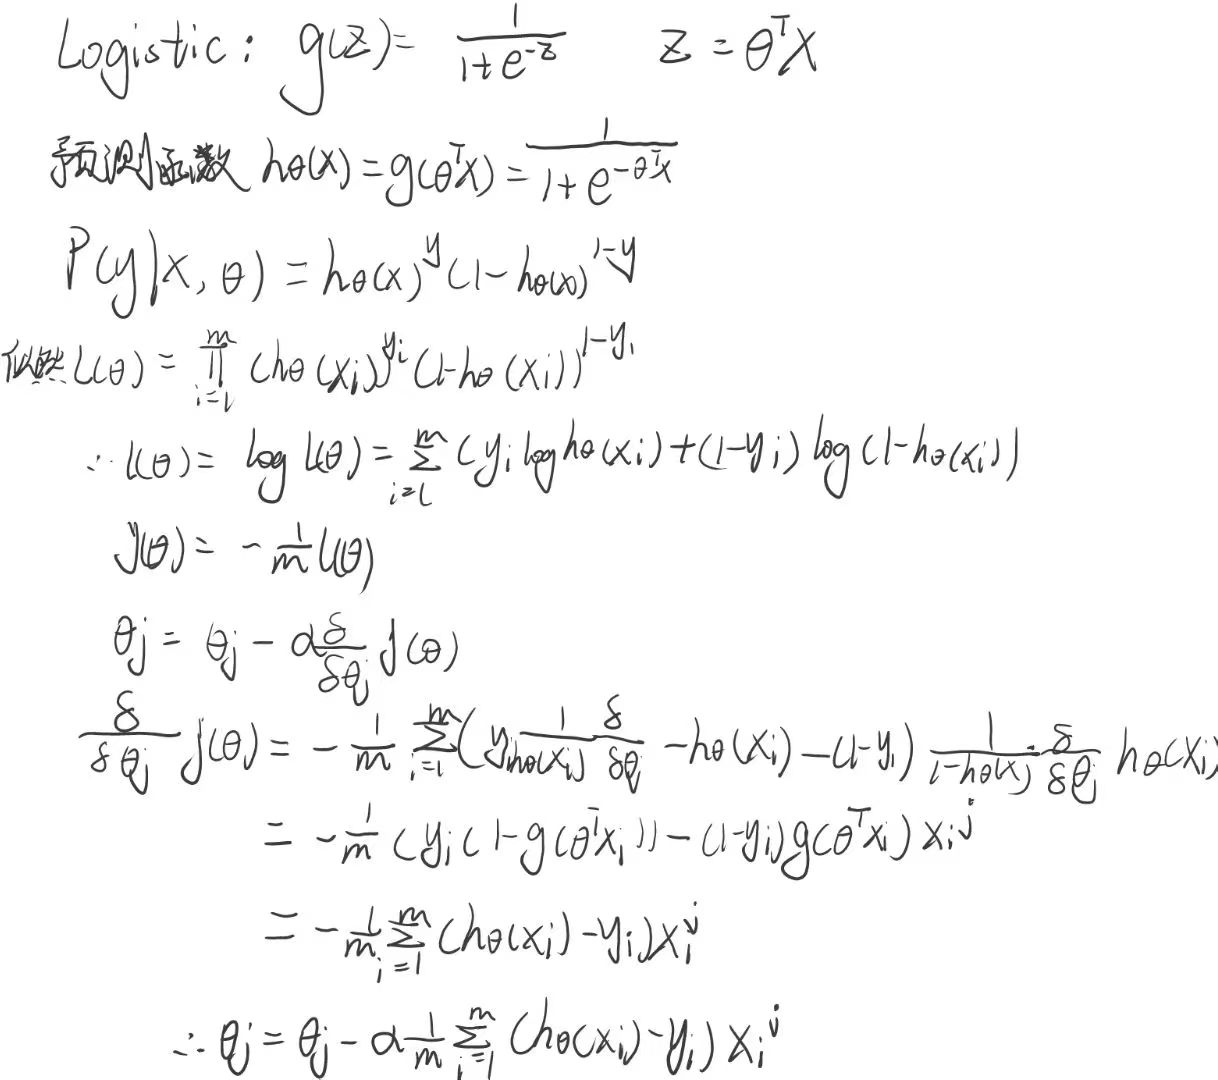 Logistic: g(z)= 1/(1+e^{-z}) z=θ^T X
预测函数 hθ(x)=g(θ^T X)= 1/(1+e^{-θ^T X})
P(y|x,θ)=hθ(x)^y (1-hθ(x))^{1-y}
似然 L(θ)= ∏_{i=1}^m (hθ(xi))^{yi} (1-hθ(xi))^{1-yi}
∴ l(θ)= log L(θ)= Σ_{i=1}^m (yi log hθ(xi)+(1-yi) log(1-hθ(xi))
J(θ)= -1/m l(θ)
θj = θj - α δ/δθj J(θ)
δ/δθj J(θ)= -1/m Σ_{i=1}^m (yi 1/hθ(xi) δ/δθj -hθ(xi) -(1-yi) 1/(1-hθ(xi)) · δ/δθj hθ(xi)
= -1/m (yi(1-g(θ^T xi))-(1-yi)g(θ^T xi)) xi^j
= -1/m Σ_{i=1}^m (hθ(xi)-yi)xi^j
∴ θj = θj - α 1/m Σ_{i=1}^m (hθ(xi)-yi) xi^j